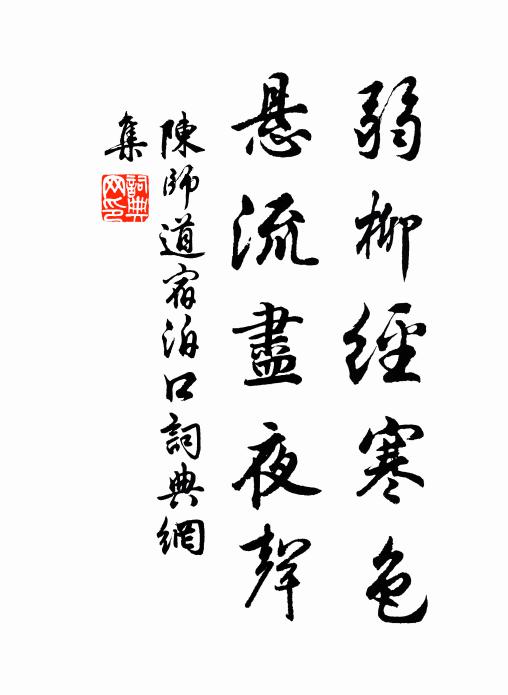 弱柳經寒色
悬流盡夜聲
陳師道宿泊口詞典網
集
詞典
网印